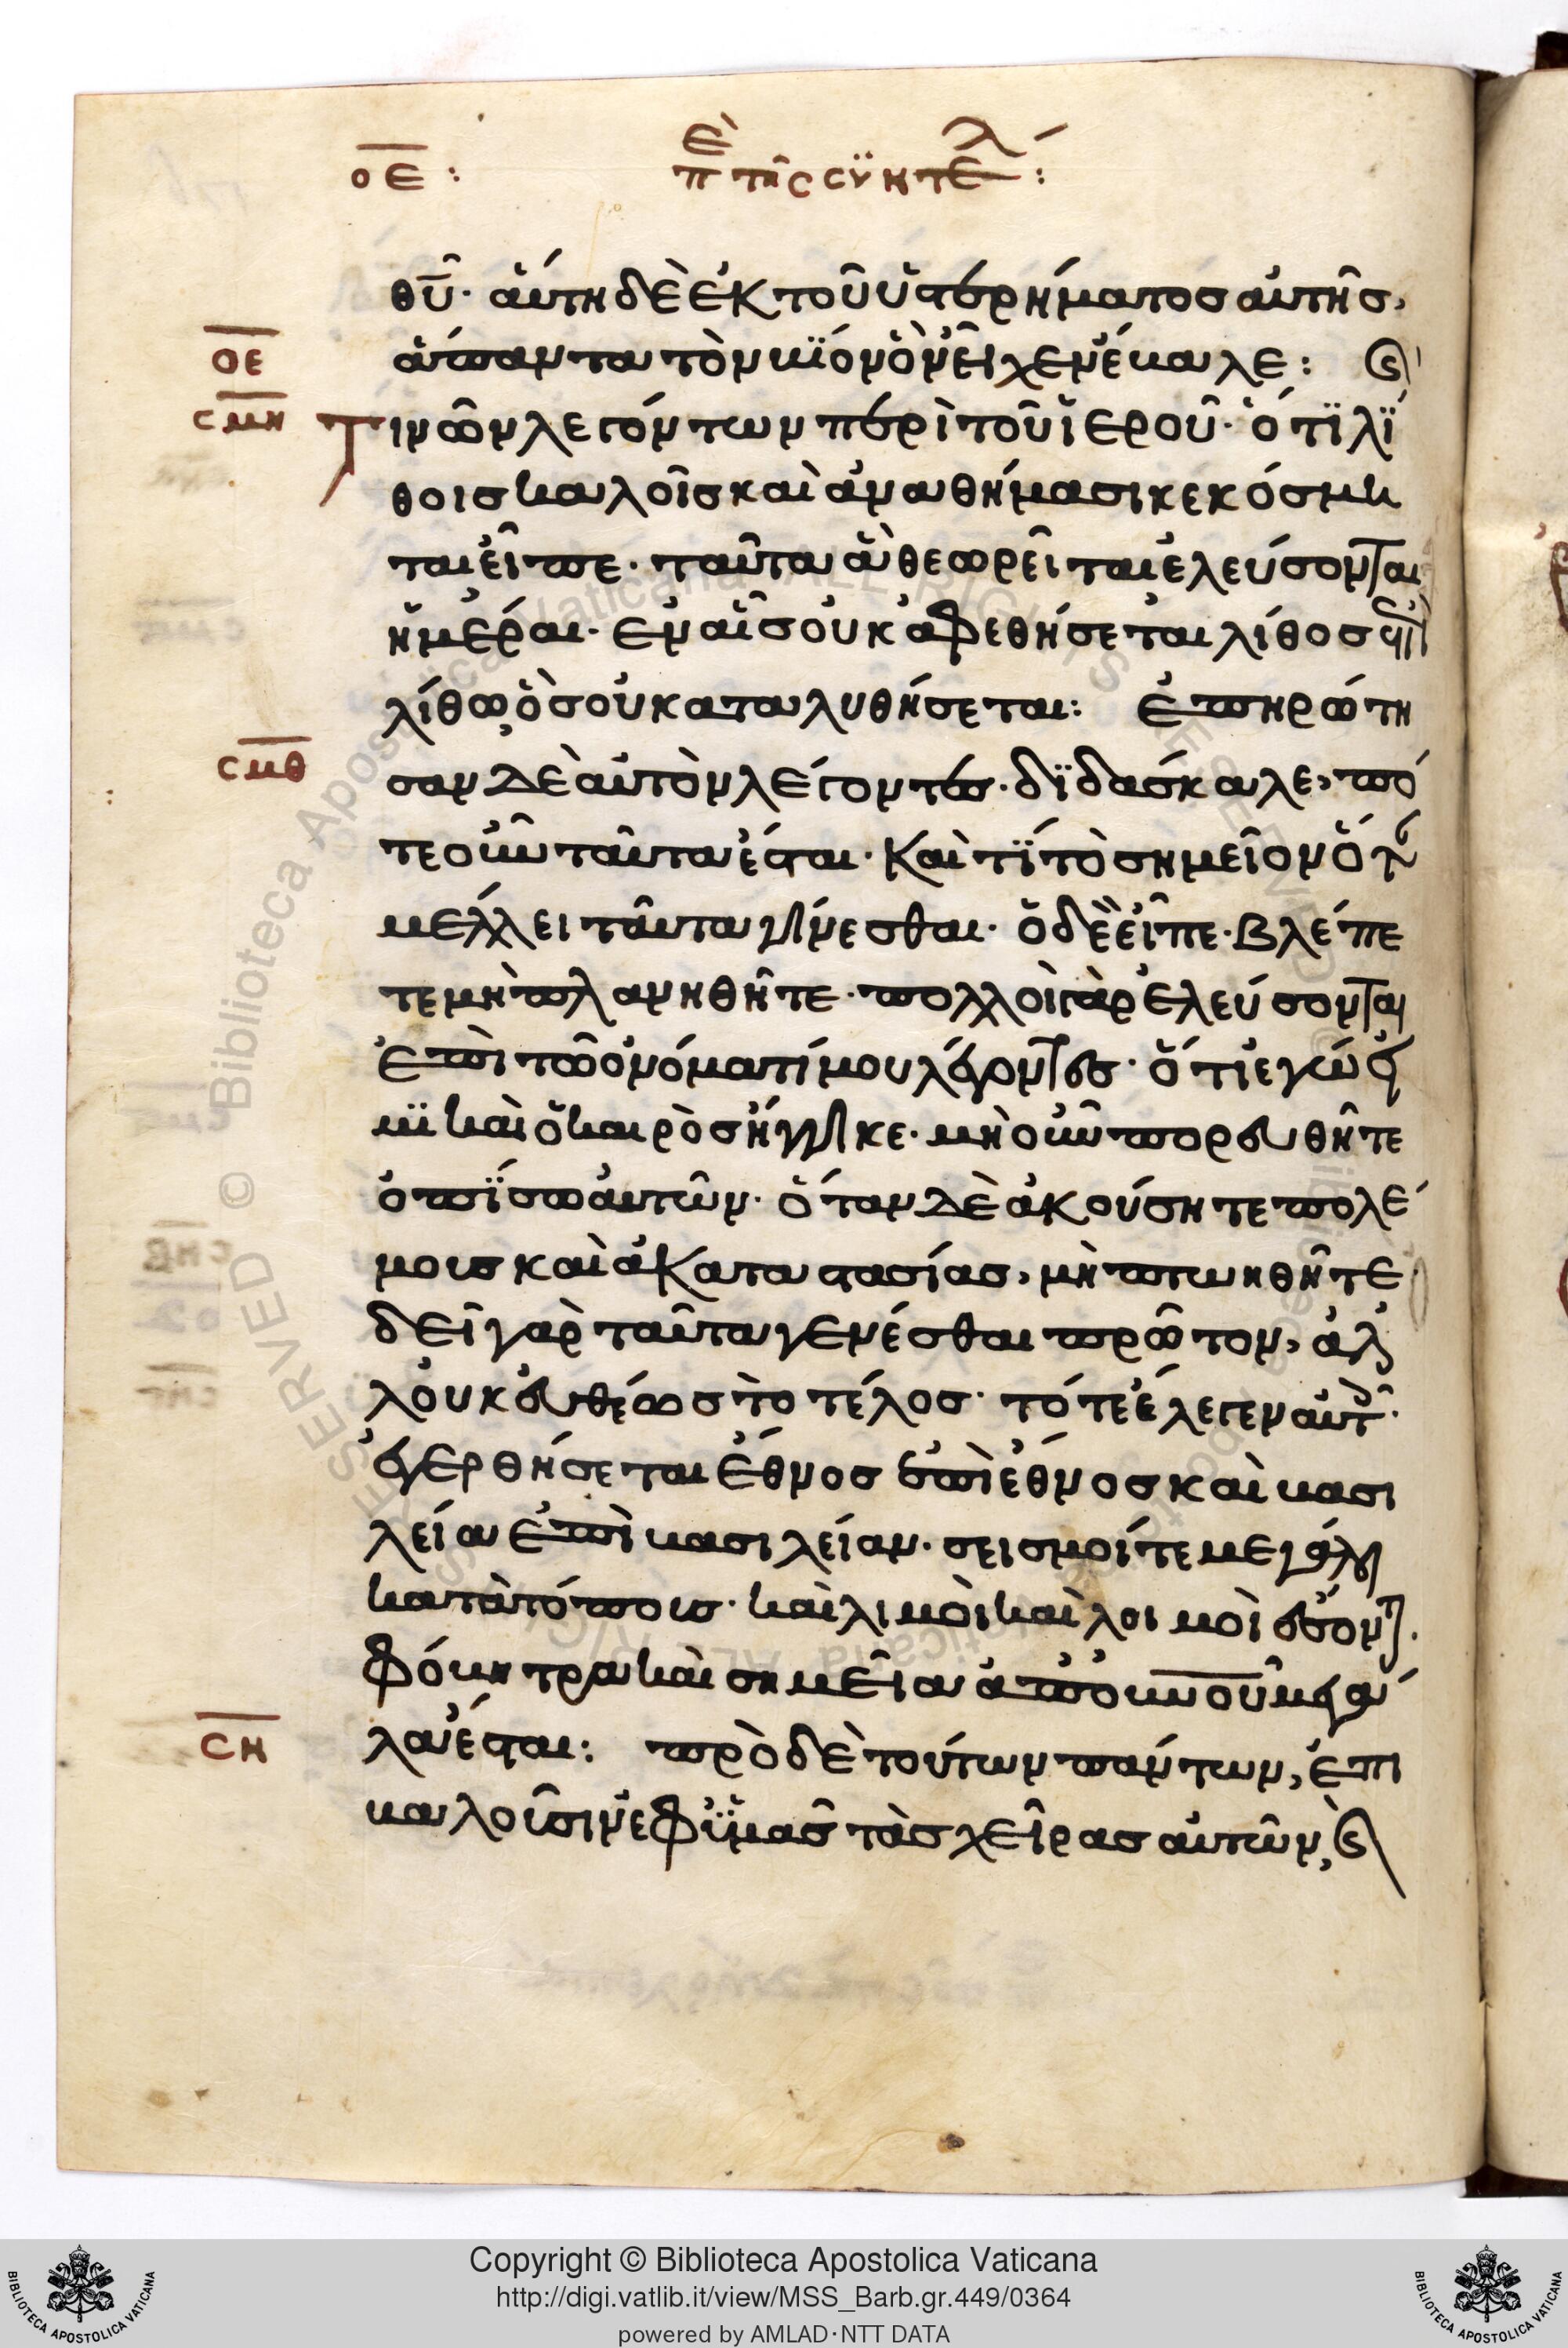 οε: ἐπ τῆς συντελ:
θῦ· ἅυτη δὲ ἐκ τοῦ ὑστερήματος αὐτῆς,
οε ἅπαντα τὸν βίον ὃν εἶχεν ἔβαλε: καὶ
σμη Τινῶν λεγόντων περὶ τοῦ ἱεροῦ· ὅτι λί
θοις καλοῖς καὶ ἀναθήμασι κεκόσμη
ται εἶπε· ταῦτα ἃ θεωρεῖται ἐλεύσονται
ἡμέραι· ἐν αἷς οὐκ ἀφεθήσεται λίθος ἐπὶ
λίθω, ὃς οὐ καταλυθήσεται: ἐπηρώτη
σμθ σαν δὲ αὐτὸν λέγοντες· διδάσκαλε, πό
τε οὖν ταῦτα ἔσται· καὶ τί τὸ σημεῖον ὅταν
μέλλει ταῦτα γίνεσθαι· ὁ δὲ εἶπε· βλέπε
τε μὴ πλανηθῆτε· πολλοὶ γὰρ ἐλεύσονται
ἐπὶ τῶ ὀνόματί μου λέγοντες· ὅτι ἐγώ εἰ
μι καὶ ὁ καιρὸς ἤγγικε· μὴ οὖν πορευθῆτε
ὀπίσω αὐτῶν· ὅταν δὲ ἀκούσητε πολέ
μους καὶ ἀκαταστασίας, μὴ πτωηθῆτε
δεῖ γὰρ ταῦτα γενέσθαι πρῶτον, ἀλ
λ' οὐκ εὐθέως τὸ τέλος· τότε ἔλεγεν αὐτοῖς·
ἐγερθήσεται ἔθνος ἐπὶ ἔθνος καὶ βασι
λεία ἐπὶ βασιλείαν· σεισμοί τε μεγάλοι
κατὰ τόπους· καὶ λιμοὶ καὶ λοιμοὶ ἔσονται·
φόβητρα καὶ σημεῖα ἀπὸ οὐνοῦ μεγά
σν λα ἔσται: πρὸ δὲ τούτων πάντων, ἐπι
βαλοῦσιν ἐφ' ὑμᾶς τὰς χεῖρας αὐτῶν, καὶ
Copyright © Biblioteca Apostolica Vaticana
http://digi.vatlib.it/view/MSS_Barb.gr.449/0364
powered by AMLAD·NTT DATA